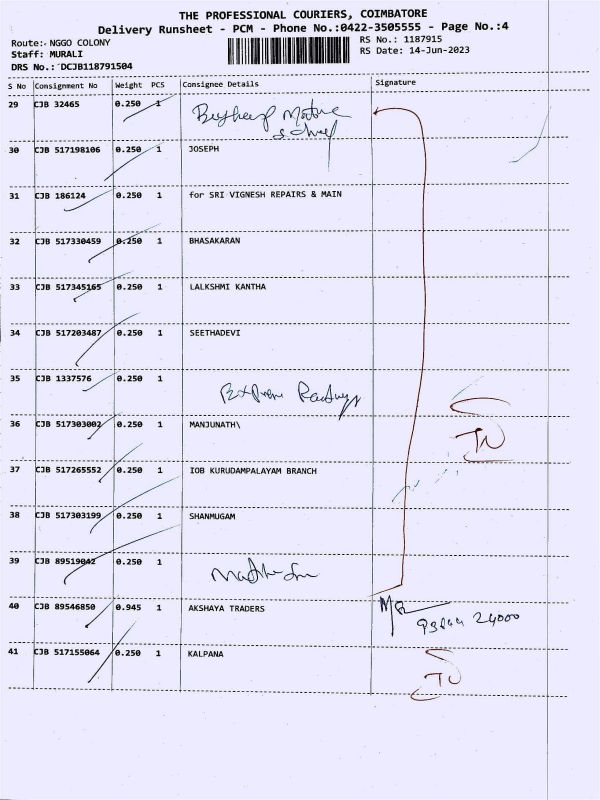 THE PROFESSIONAL COURIERS, COIMBATORE
Delivery Runsheet - PCM - Phone No.:0422-3505555 - Page No.:4
Route: NGGO COLONY RS No.: 1187915
Staff: MURALI RS Date: 14-Jun-2023
DRS No.: DCJB118791504
S No Consignment No Weight PCS Consignee Details Signature
29 CJB 32465 0.250 1
30 CJB 517198106 0.250 1 JOSEPH
31 CJB 186124 0.250 1 for SRI VIGNESH REPAIRS & MAIN
32 CJB 517330459 0.250 1 BHASAKARAN
33 CJB 517345165 0.250 1 LALKSHMI KANTHA
34 CJB 517203487 0.250 1 SEETHADEVI
35 CJB 1337576 0.250 1
36 CJB 517303002 0.250 1 MANJUNATH\
37 CJB 517265552 0.250 1 IOB KURUDAMPALAYAM BRANCH
38 CJB 517303199 0.250 1 SHANMUGAM
39 CJB 89519042 0.250 1
40 CJB 89546850 0.945 1 AKSHAYA TRADERS
41 CJB 517155064 0.250 1 KALPANA